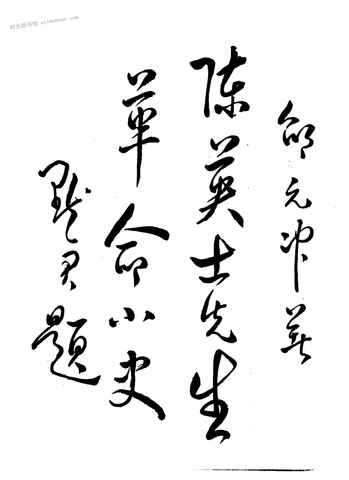 邵元冲著
陈英士先生
革命小史
默君題